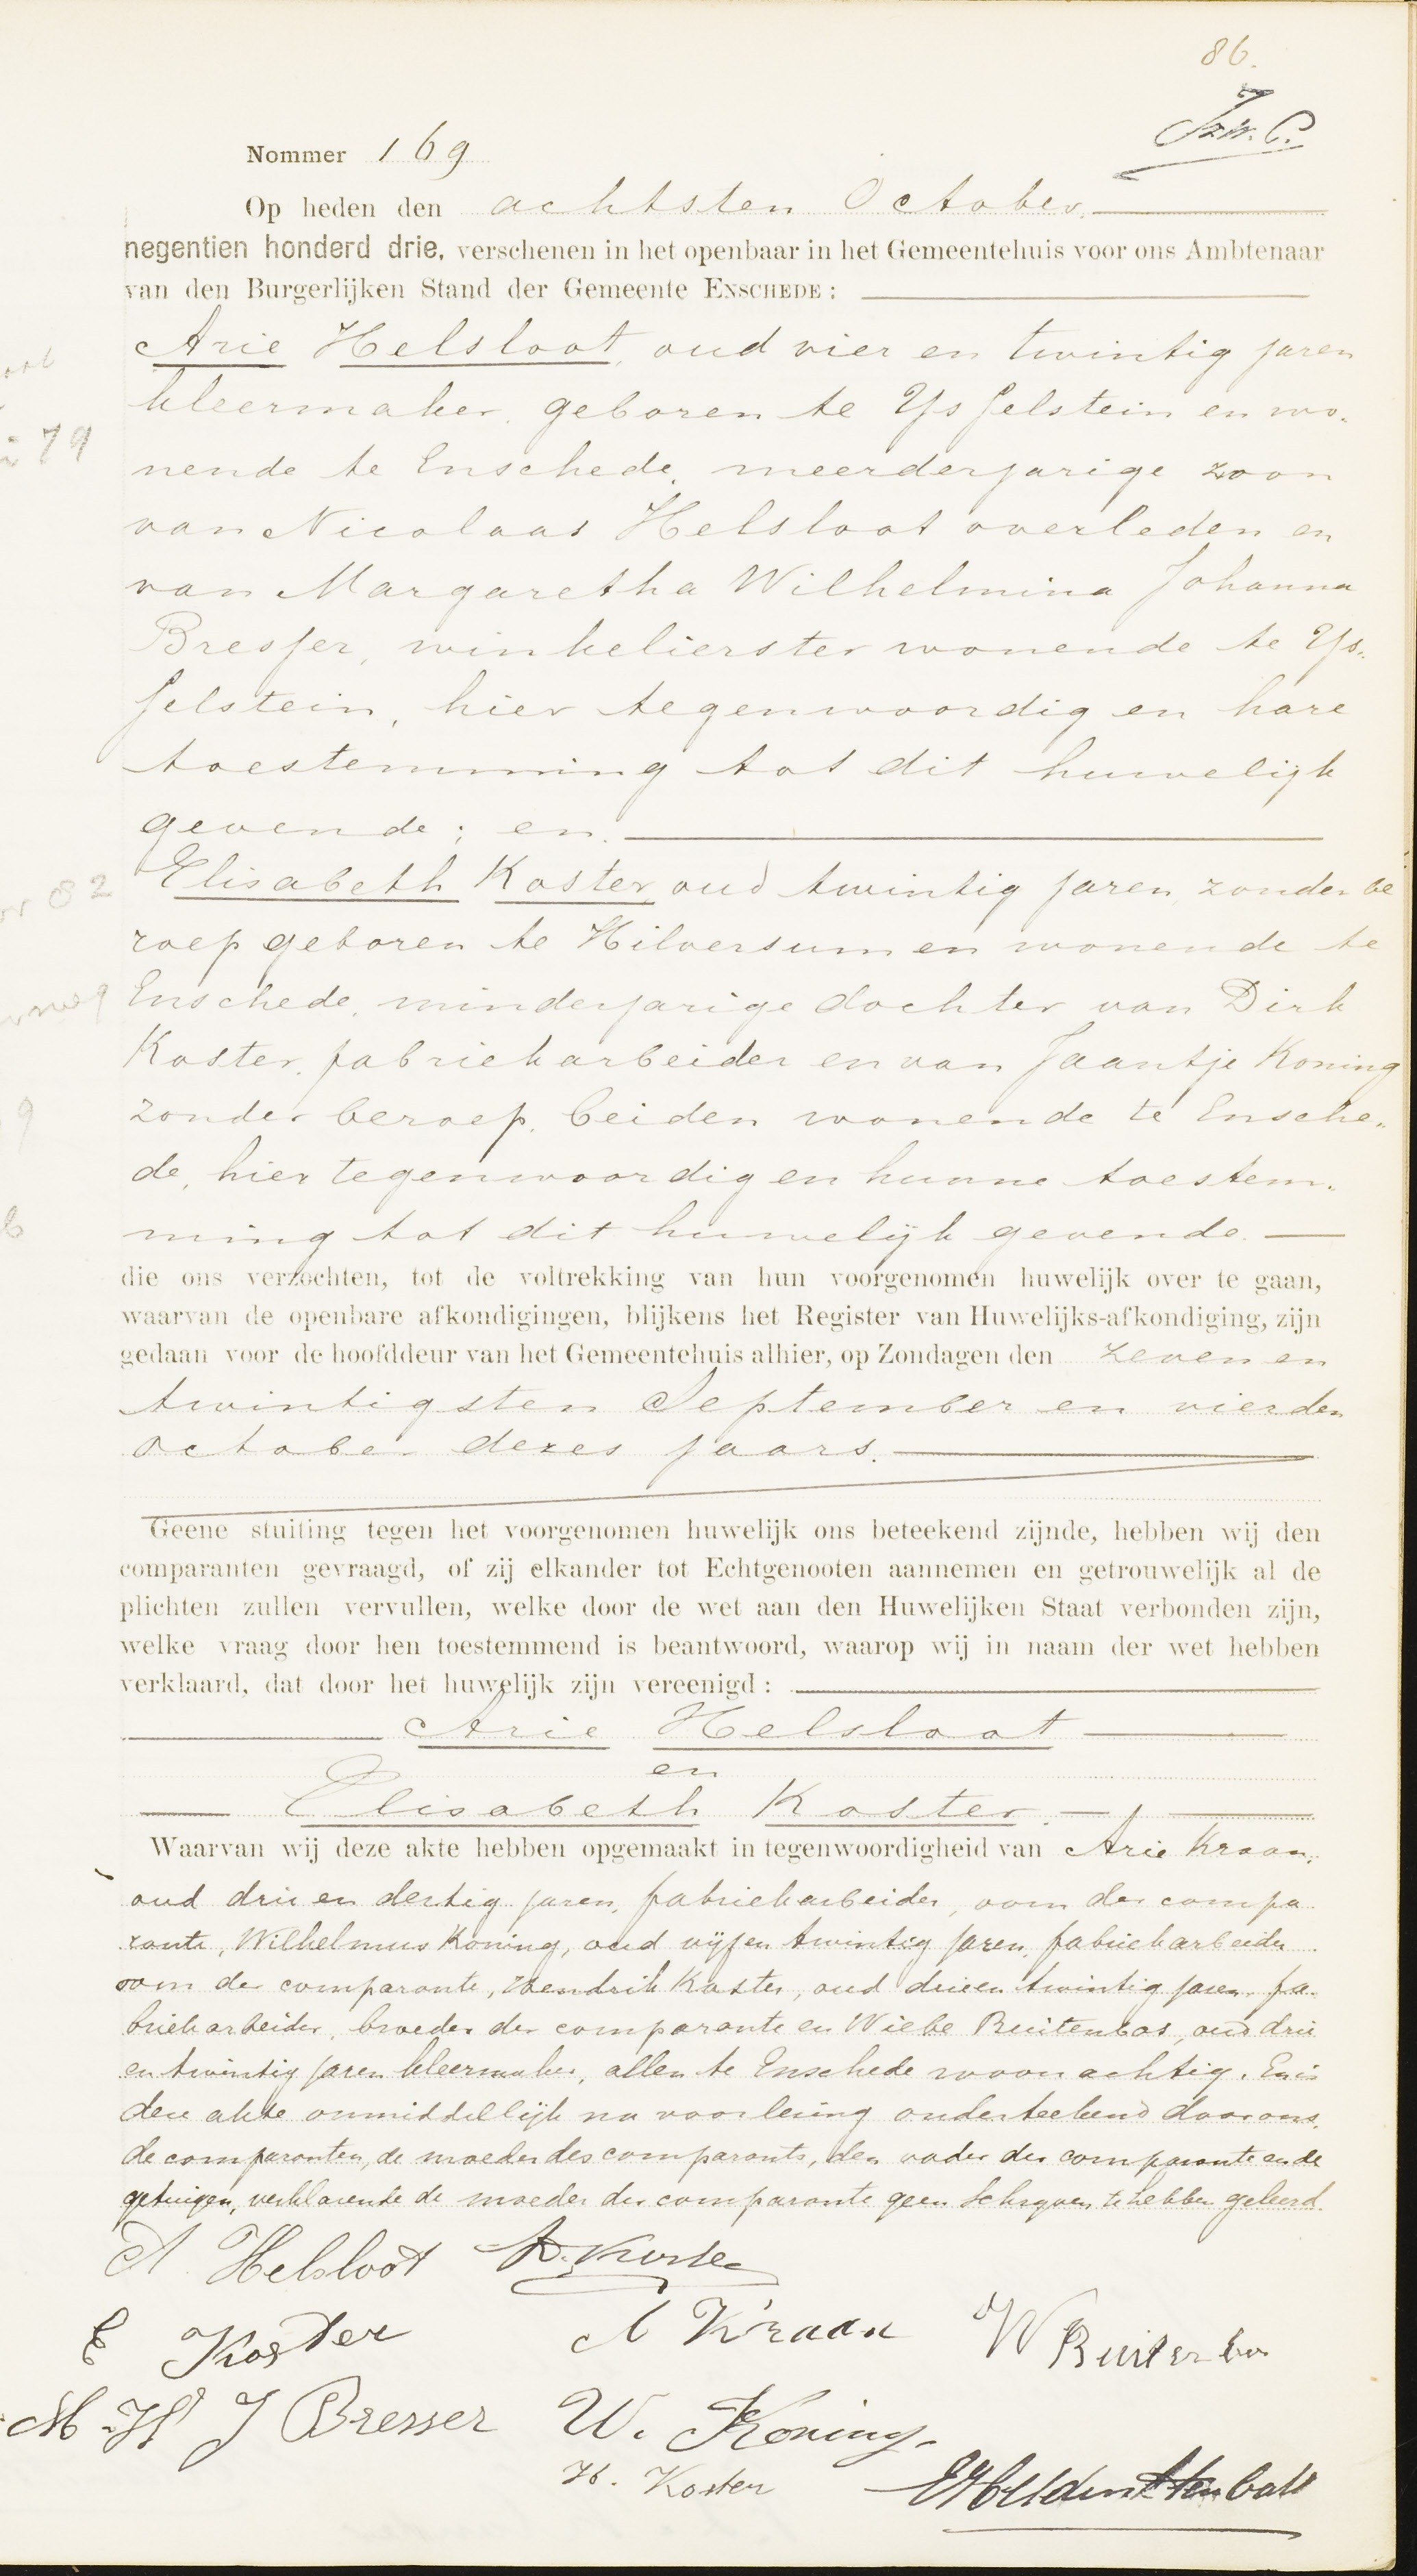 86.
Nommer 169
Op heden den achtsten October.
negentien honderd drie, verschenen in het openbaar in het Gemeentehuis voor ons Ambtenaar
van den Burgerlijken Stand der Gemeente ENSCHEDE:
Arie Helsloot, oud vier en twintig jaren
kleermaker, geboren te Ysselstein en wo-
nende te Enschede, meerderjarige zoon
van Nicolaas Helsloot overleden en
van Margaretha Wilhelmina Johanna
Bresser, winkelierster wonende te Ys-
selstein, hier tegenwoordig en hare
toestemming tot dit huwelijk
gevende; en
Elisabeth Koster, oud twintig jaren, zonder be
roep geboren te Hilversum en wonende te
Enschede, minderjarige dochter van Dirk
Koster, fabriekarbeider en van Jaantje Koning
zonder beroep, beiden wonende te Ensche-
de, hier tegenwoordig en hunne toestem-
ming tot dit huwelijk gevende.
die ons verzochten, tot de voltrekking van hun voorgenomen huwelijk over te gaan,
waarvan de openbare afkondigingen, blijkens het Register van Huwelijks-afkondiging, zijn
gedaan voor de hoofddeur van het Gemeentehuis alhier, op Zondagen den zeven en
twintigsten September en vierden
October dezes jaars.
Geene stuiting tegen het voorgenomen huwelijk ons beteekend zijnde, hebben wij den
comparanten gevraagd, of zij elkander tot Echtgenooten aannemen en getrouwelijk al de
plichten zullen vervullen, welke door de wet aan den Huwelijken Staat verbonden zijn,
welke vraag door hen toestemmend is beantwoord, waarop wij in naam der wet hebben
verklaard, dat door het huwelijk zijn vereenigd:
Arie Helsloot
en
Elisabeth Koster.
Waarvan wij deze akte hebben opgemaakt in tegenwoordigheid van Arie Kraan,
oud drie en dertig jaren, fabriekarbeider, oom der compa
rante, Wilhelmus Koning, oud vijf en twintig jaren, fabriekarbeider
oom der comparante, Hendrik Koster, oud drie en twintig jaren, fa-
briekarbeider, broeder der comparante en Wiebe Buitenbos, oud drie
en twintig jaren kleermaker, allen te Enschede woonachtig. En is
deze akte onmiddellijk na voorlezing onderteekend door ons,
de comparanten, de moeder des comparants, den vader der comparante en de
getuigen, verklarende de moeder der comparante geen schrijven te hebben geleerd.
A. Helsloot D. Koster
E Koster A Kraan W Buitenbos
M W J Bresser W. Koning
H. Koster